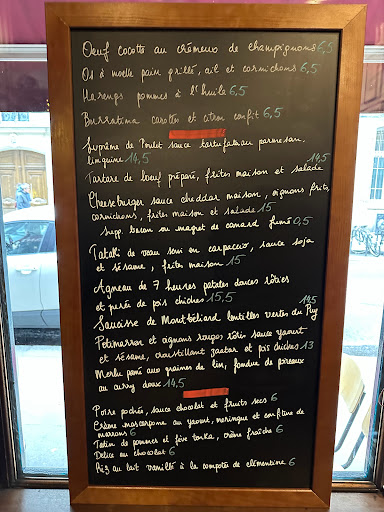 Oeuf cocotte au crémeux de champignons 6,5
Os à moelle pain grillé, ail et cornichons 6,5
Harengs pommes à l'huile 6,5
Burratina carottes et citron confit 6,5
Suprême de Poulet sauce tartufata au parmesan,
linguine 14,5
Tartare de boeuf préparé, frites maison et salade 14,5
Cheeseburger sauce cheddar maison, oignons frits,
cornichons, frites maison et salade 15
supp. bacon ou magret de canard fumé 0,5
Tataki de veau servi en carpaccio, sauce soja
et sésame, frites maison 15
Agneau de 7 heures patates douces rôties
et purée de pois chiches 15,5
Saucisse de Montbéliard lentilles vertes du Puy 14,5
Potimarron et oignons rouges rôtis sauce yaourt
et sésame, croustillant zaatar et pois chiches 13
Merlu pané aux graines de lin, fondue de poireaux
au curry doux 14,5
Poire pochée, sauce chocolat et fruits secs 6
Crème mascarpone au yaourt, meringue et confiture de
marrons 6
Tatin de pommes et fève tonka, crème fraîche 6
Délice au chocolat 6
Riz au lait vanillé à la compotée de clémentine 6